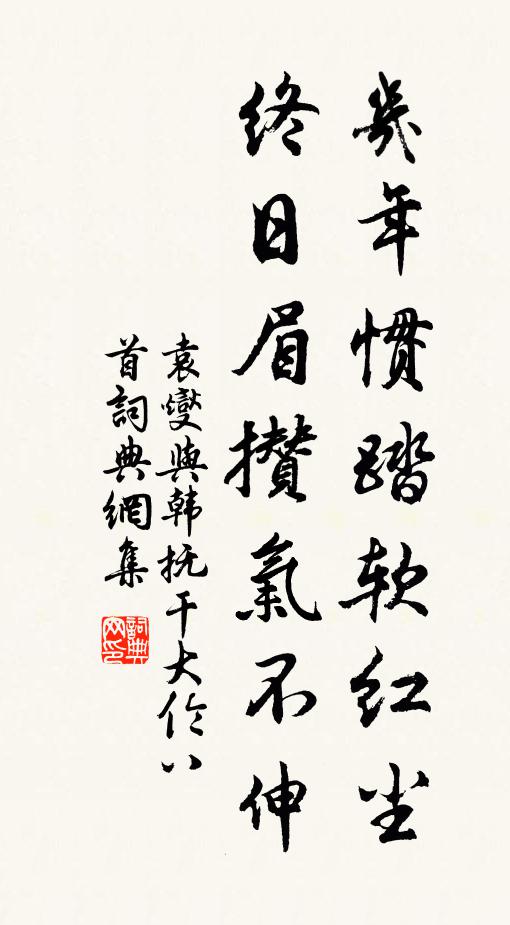 幾年慣踏軟紅尘
終日眉攢氣不伸
袁燮與韩抚干大伦八
首詞典網集
詞典网印